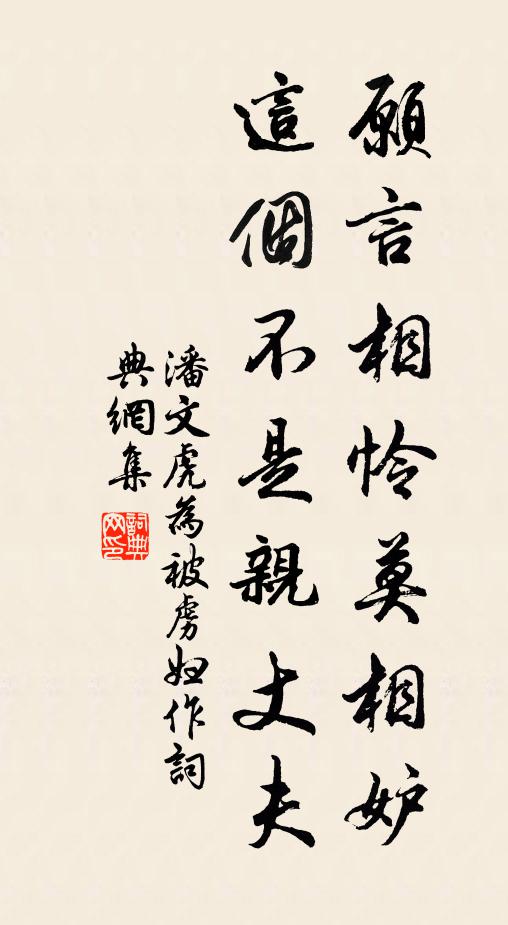 願言相怜莫相妒
這個不是親丈夫
潘文虎為被虜婦作詞
典網集
詞典
网印